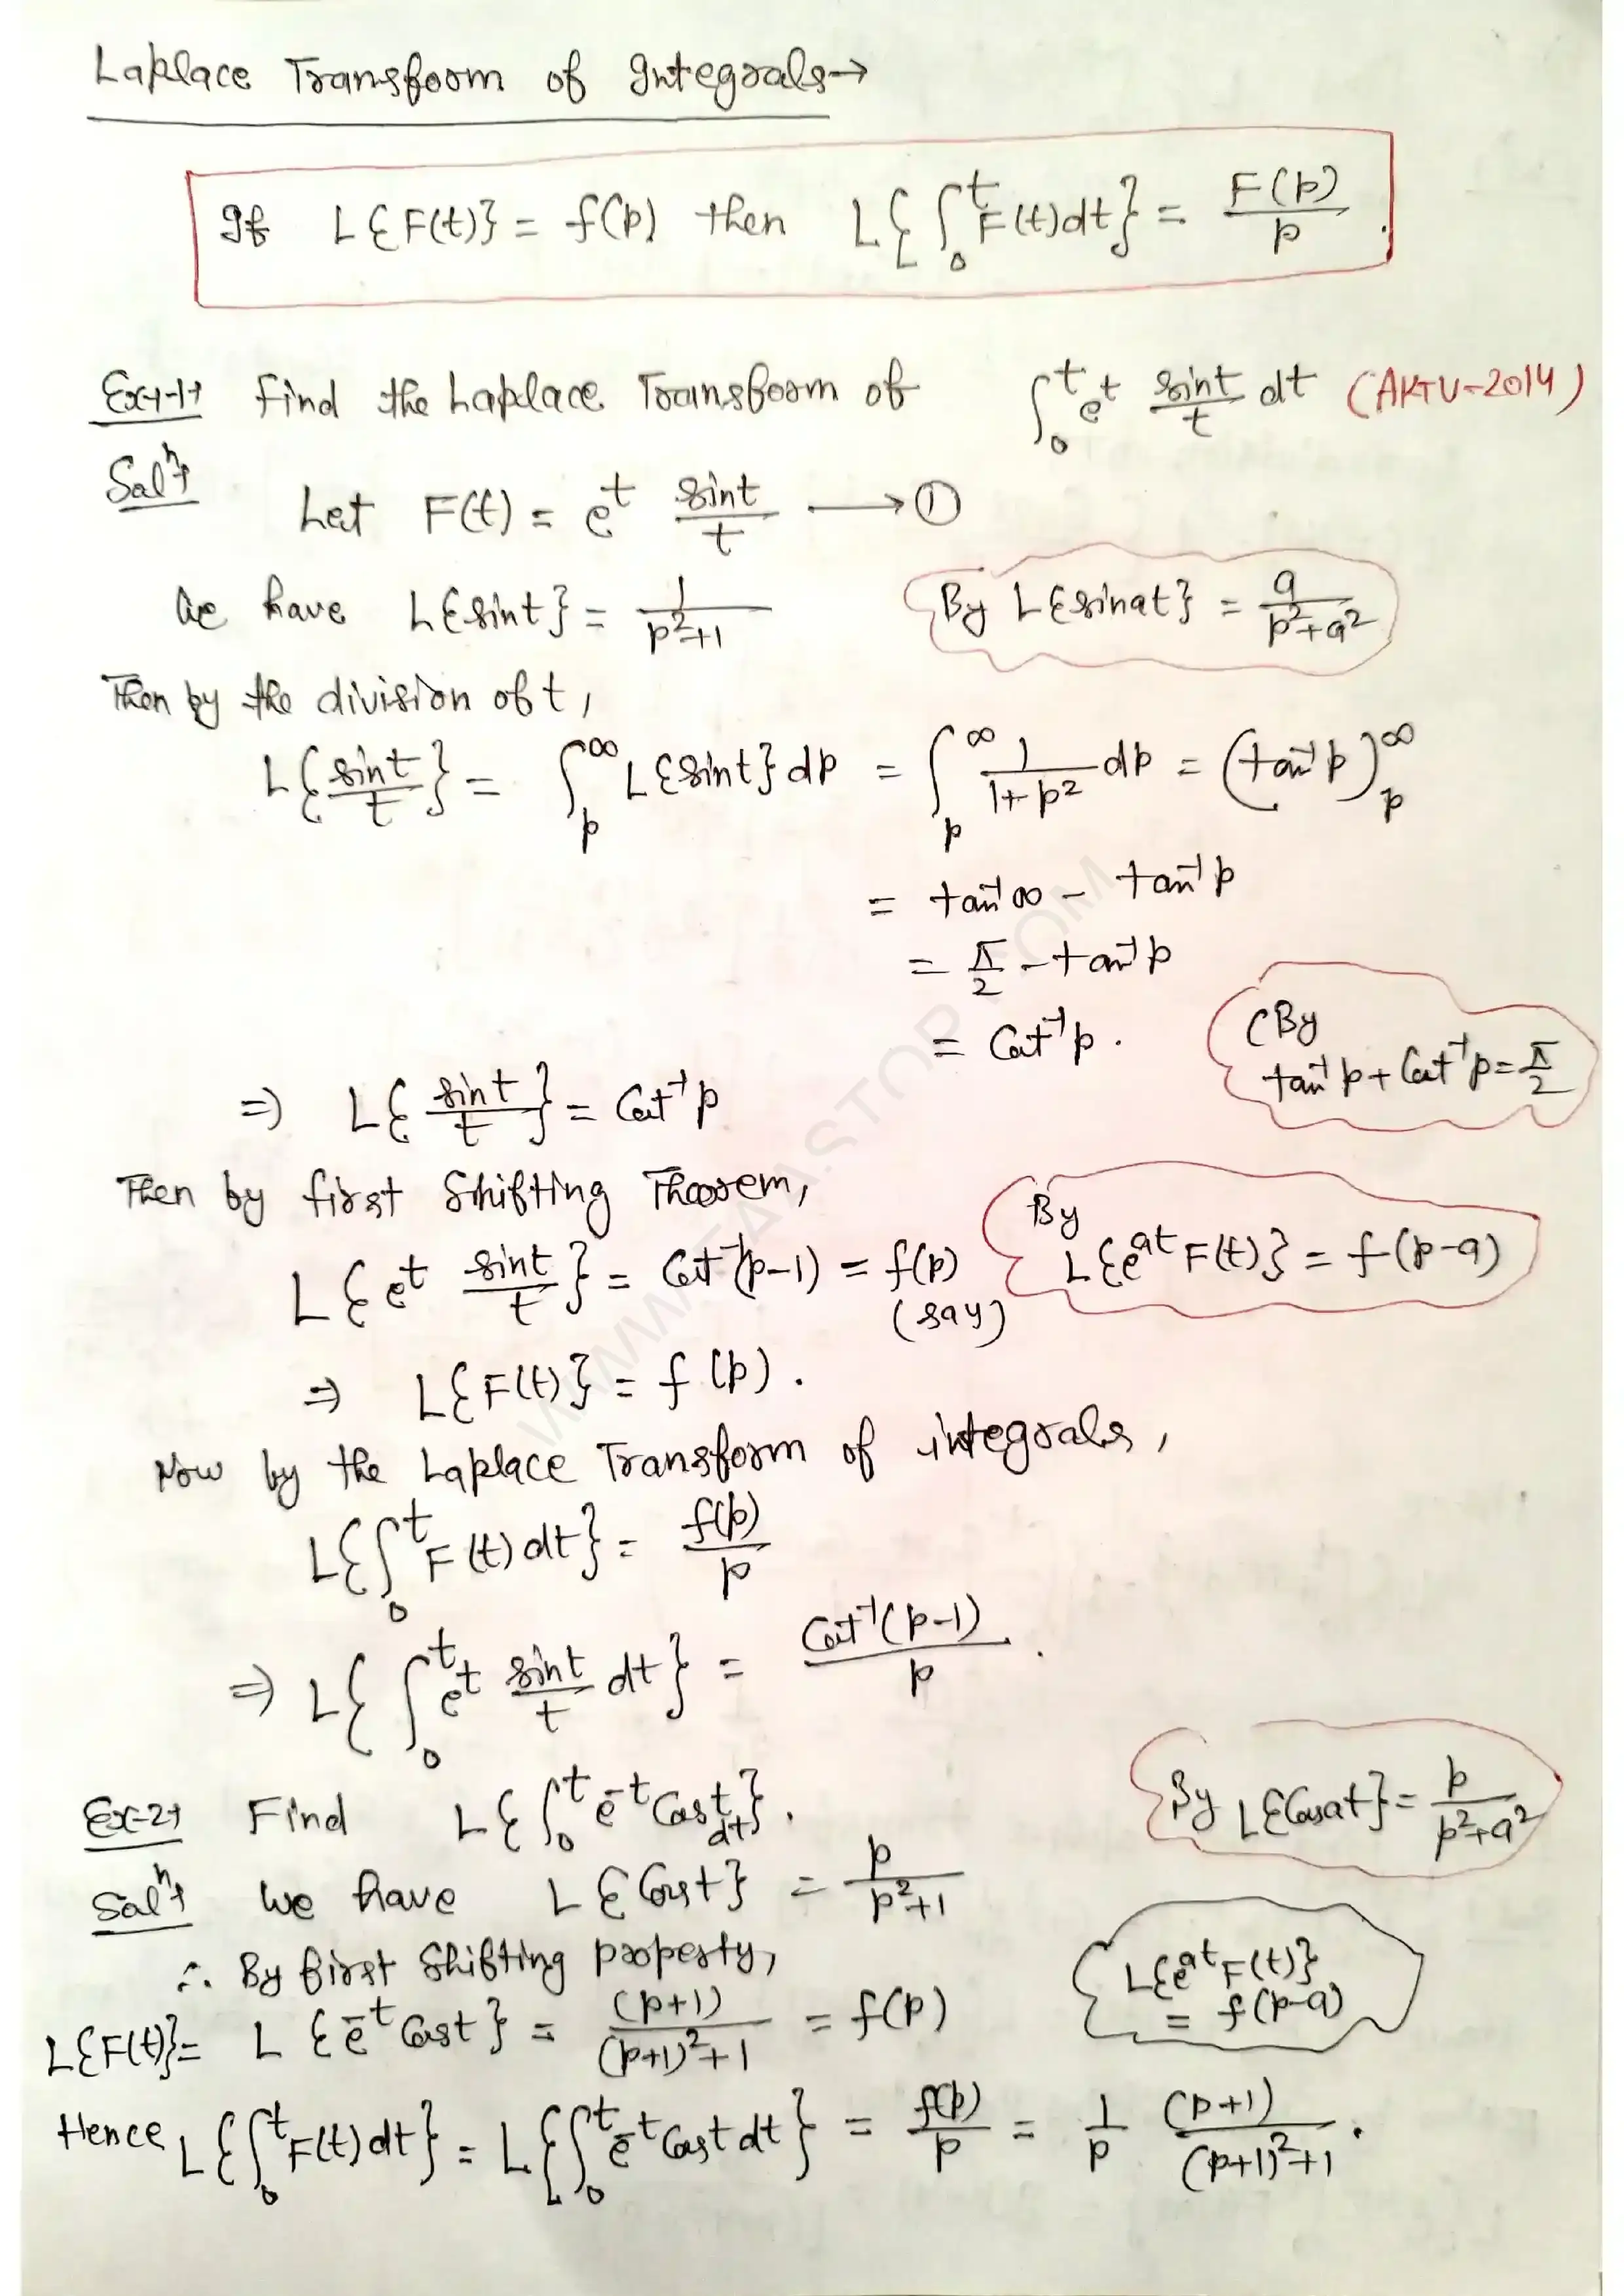 Laplace Transform of Integrals→
If L{F(t)} = f(p) then L{∫₀ᵗ F(t)dt} = F(p)/p.
Ex-1→ Find the Laplace Transform of ∫₀ᵗ eᵗ sint/t dt (AKTU-2014)
Solⁿ→
Let F(t) = eᵗ sint/t ⟶ ①
We have L{sint} = 1/(p²+1) By L{sinat} = a/(p²+a²)
Then by the division of t,
L{sint/t} = ∫ₚ^∞ L{sint}dp = ∫ₚ^∞ 1/(1+p²) dp = (tan⁻¹p)ₚ^∞
= tan⁻¹∞ − tan⁻¹p
= π/2 − tan⁻¹p
= Cot⁻¹p.
(By
tan⁻¹p + Cot⁻¹p = π/2
⇒ L{sint/t} = Cot⁻¹p
Then by first Shifting Theorem,
By
L{eᵗ sint/t} = Cot⁻¹(p−1) = f(p) L{eᵃᵗ F(t)} = f(p−a)
(say)
⇒ L{F(t)} = f(p).
Now by the Laplace Transform of integrals,
L{∫₀ᵗ F(t)dt} = f(p)/p
⇒ L{∫₀ᵗ eᵗ sint/t dt} = Cot⁻¹(p−1)/p.
Ex-2→ Find L{∫₀ᵗ e⁻ᵗ Cost dt}. By L{Cosat} = p/(p²+a²)
Solⁿ→ We have L{Cost} = p/(p²+1)
∴ By first Shifting property,
L{eᵃᵗ F(t)}
= f(p−a)
L{F(t)} = L{e⁻ᵗ Cost} = (p+1)/((p+1)²+1) = f(p)
Hence L{∫₀ᵗ F(t)dt} = L{∫₀ᵗ e⁻ᵗ Cost dt} = f(p)/p = 1/p (p+1)/((p+1)²+1).